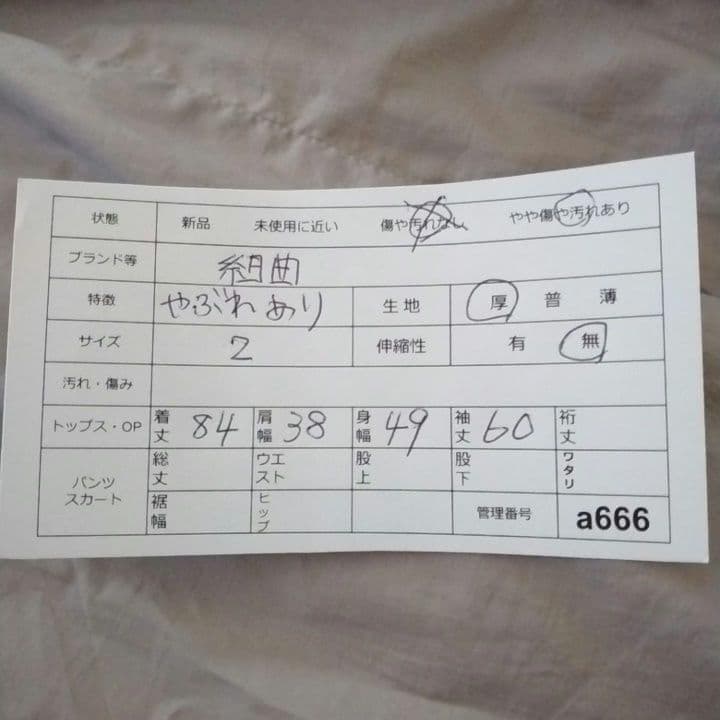 状態 新品 未使用に近い 傷や汚れなし やや傷や汚れあり
ブランド等 組曲
特徴 やぶれあり 生地 厚 普 薄
サイズ 2 伸縮性 有 無
汚れ・傷み
トップス・OP 着丈 84 肩幅 38 身幅 49 袖丈 60 裄丈
パンツ スカート 総丈 ウエスト 股上 股下 ワタリ
裾幅 ヒップ 管理番号 a666